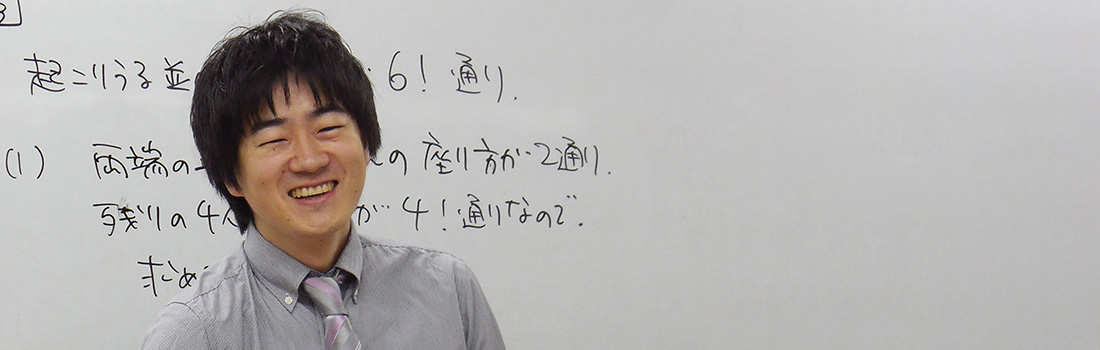 3
起こりうる並 6! 通り.
(1) 両端の の座り方が2通り.
残りの4人 が 4! 通りなので.
求め